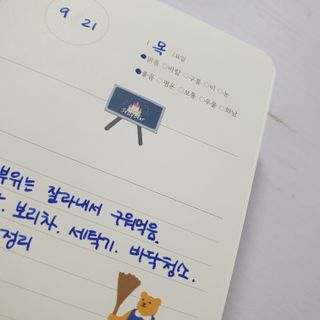 9 21
( 목 )요일
맑음 바람 구름 비 눈
좋음 평온 보통 우울 화남
부위는 잘라내서 구워먹음.
보리차. 세탁기. 바닥청소.
정리